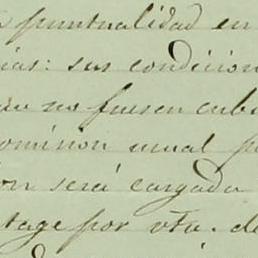 puntualidad en
ias: sus condicion
no fuesen cub
omision usual p
on será cargada
tage por vta. de